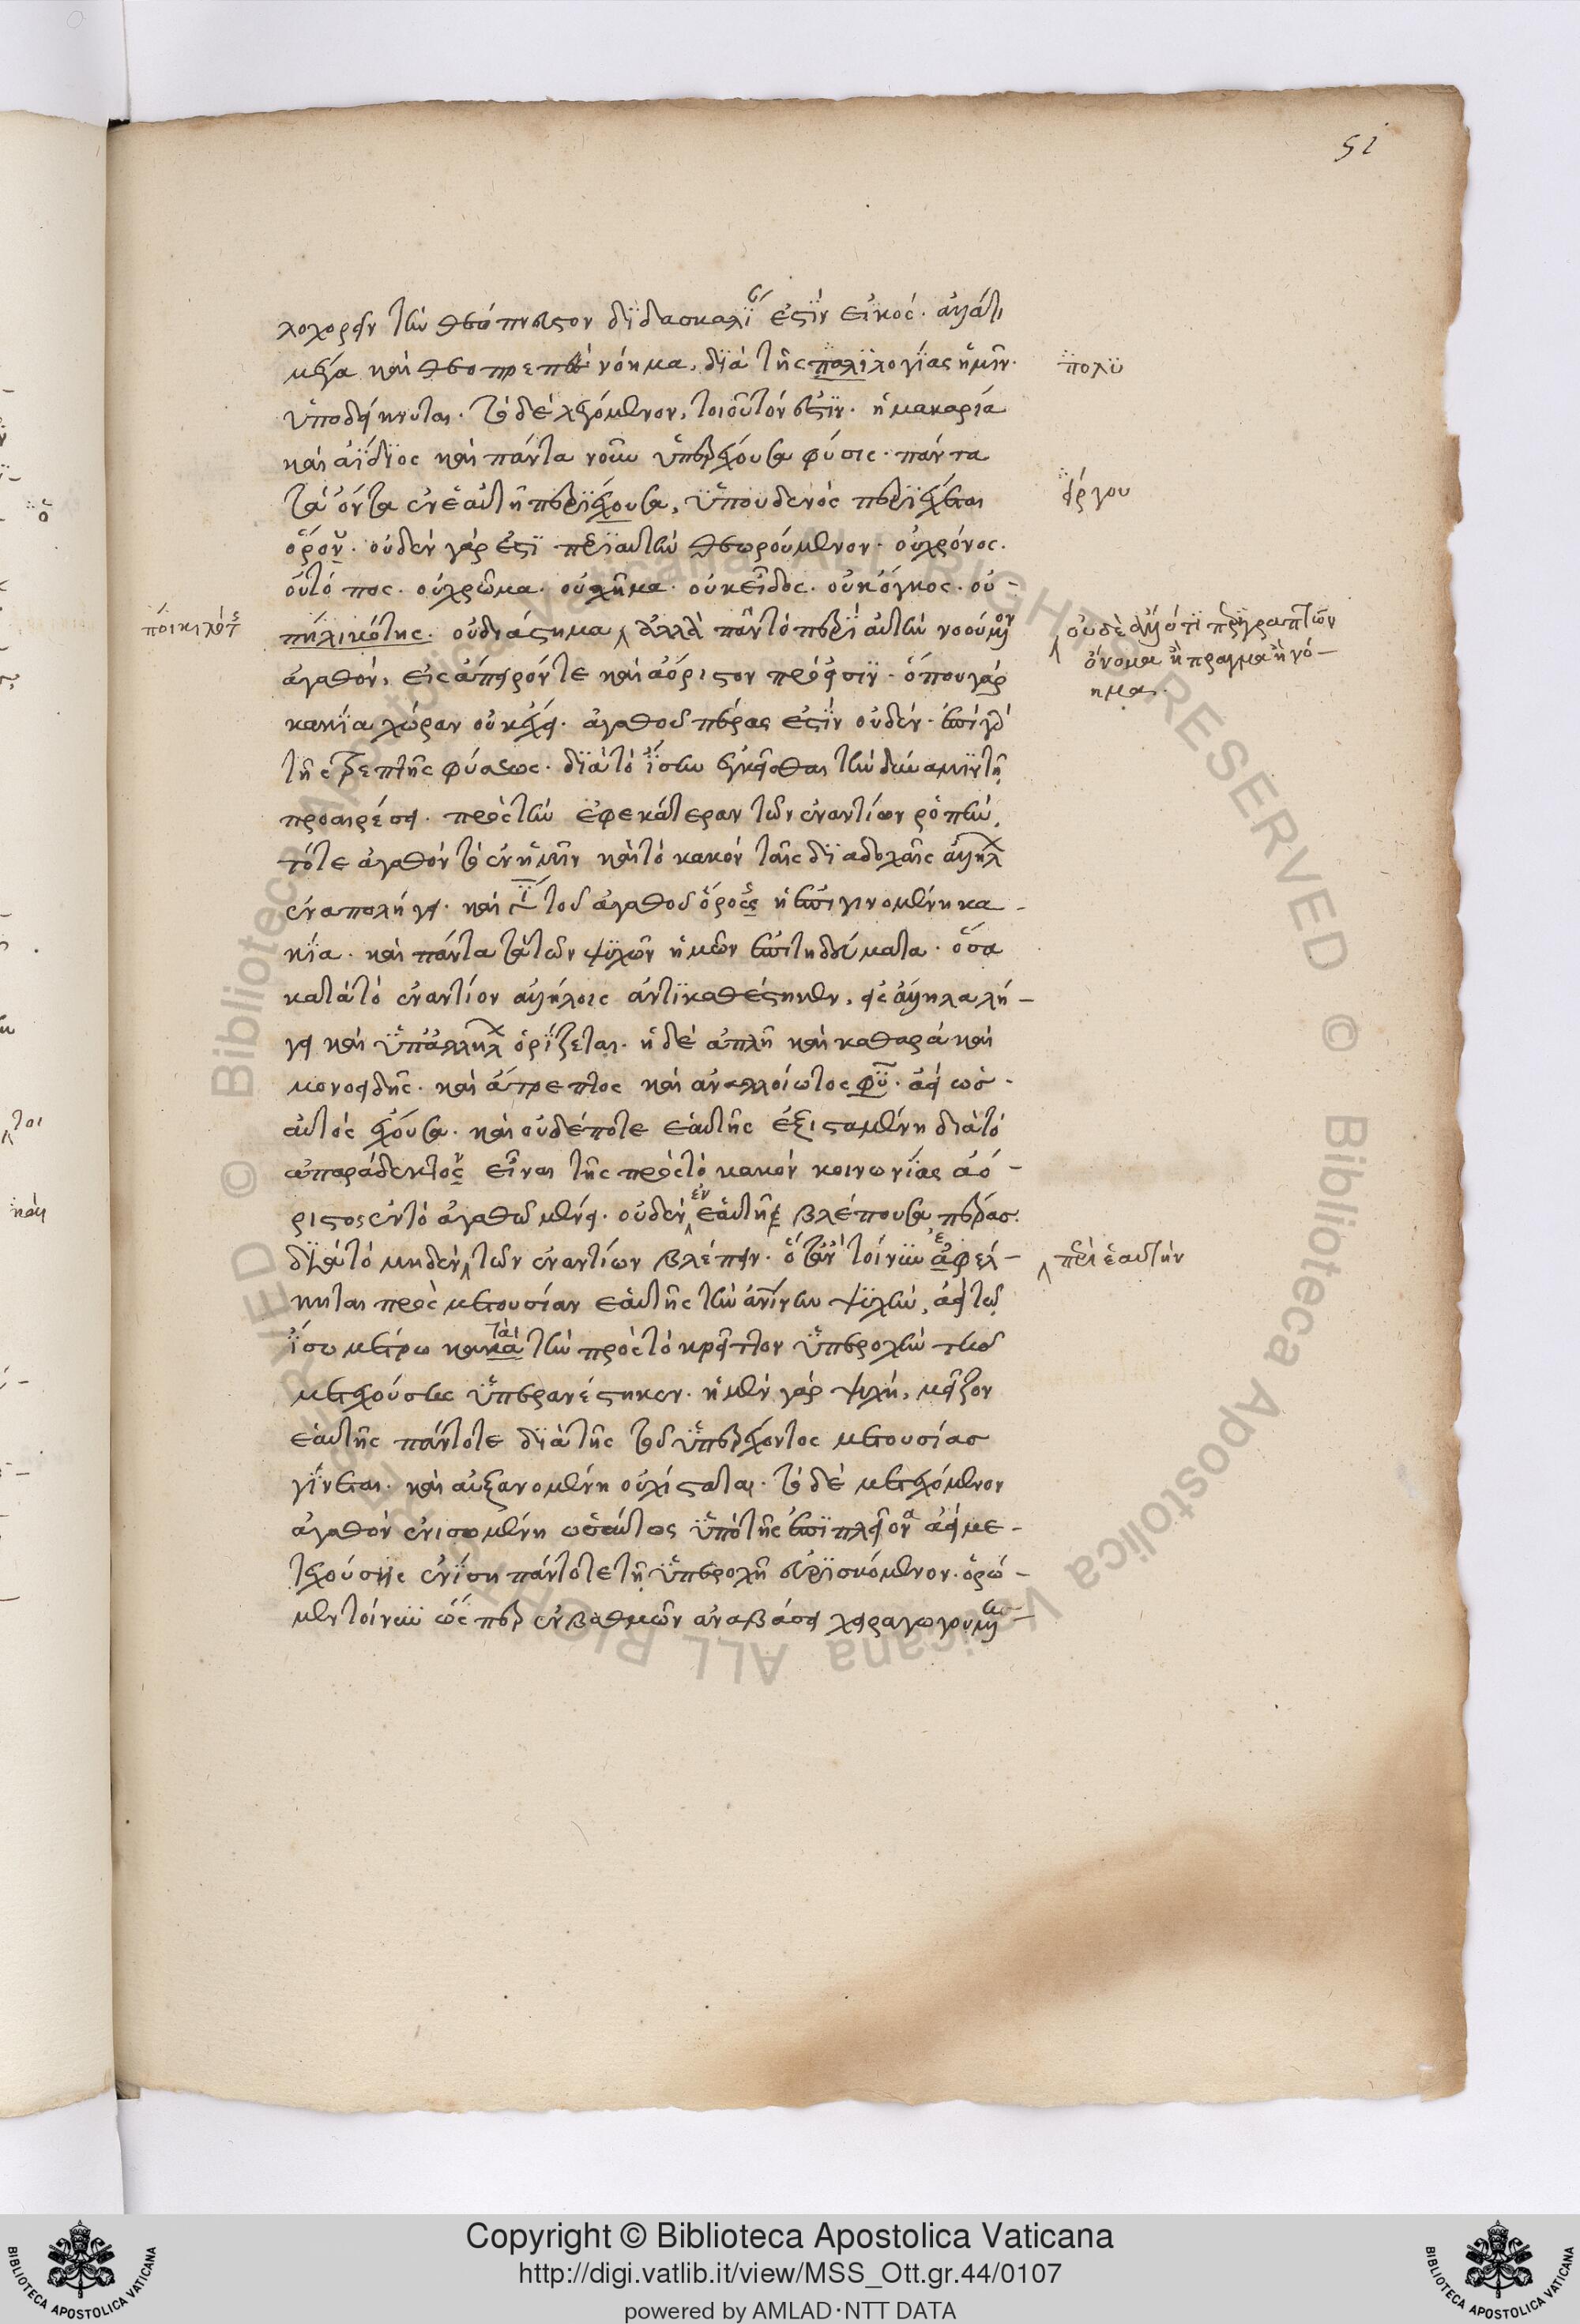 51
λογορεῖν τὴν θεόπνευστον διδασκαλί εστὶν εἰκός. ἀλλάτι
μέγα καὶ θεοπρεπὲ νόημα, διὰ τῆς παλιλογίας ἡμῖν.
πολυ
ὑποδείκνυται. τὸ δὲ λεγόμενον, τοιοῦτόν ἐστιν. ἡ μακαρία
καὶ ἀΐδιος καὶ πάντα νοῦν ὑπερέχουσα φύσις. πάντα
τὰ ὄντα ἐν ἑαυτῆ περιέχουσα, ὑπουδενὸς περιέχεται
ὅρου. οὐδὲν γάρ ἐστι περὶ αυτὴν θεωρούμενον. οὐχρόνος.
οὐ τόπος. οὐχρῶμα. οὐσχῆμα. οὐκ εἶδος. οὐκ ὄγκος. οὐ-
πηλικότης. οὐδιάστημα ἀλλὰ πᾶν τὸ περὶ αὐτὴν νοούμενον
οὐδὲ ἄλλό τι περιγραπτῶν
ὄνομα ἢ πραγμα ἢ νό-
ημα.
ἀγαθὸν, εἰς ἄπειρόν τε καὶ ἀόριστον πρόεισιν. ὅπου γὰρ
κακία χώραν οὐκ ἔχει. ἀγαθοῦ πέρας ἐστὶν οὐδέν. ἐπὶ γὰρ
τῆς τρεπτῆς φύσεως. διὰ τὸ ἴσην ἐγκεῖσθαι τὴν δύναμιν τῆ
προαιρέσει. πρὸς τὴν ἐφεκάτεραν τῶν ἐναντίων ῥοπὴν,
τότε ἀγαθὸν τὸ ἐν ἡμῖν καὶ τὸ κακὸν ταῖς διαδοχαῖς ἀλλήλ
ἐναπολήγει. καὶ τοῦ ἀγαθοῦ ὅρος ἡ ἐπιγινομένη κα-
κία. καὶ πάντα τὰ τῶν ψυχῶν ἡμῶν ἐπιτηδεύματα. ὅσα
κατὰ τὸ ἐναντίον ἀλλήλοις ἀντικαθέστηκεν, εἰς ἄλληλα λή-
γει καὶ ὑπ' ἀλλήλ ὁρίζεται. ἡ δὲ ἁπλῆ καὶ καθαρὰ καὶ
μονοειδὴς. καὶ ἄτρεπτος καὶ ἀναλλοίωτος φύ. ἀεὶ ὡσ-
αύτως ἔχουσα. καὶ οὐδέποτε ἑαυτῆς ἐξισταμένη διὰ τὸ
ἀπαράδεκτος εἶναι τῆς πρὸς τὸ κακὸν κοινωνίας ἀό-
ριστος ἐν τὸ ἀγαθῶ μένει. οὐδὲν ἐν ἑαυτῆς βλέπουσα πέρας.
διὰ τὸ μηδὲν τῶν ἐναντίων βλέπειν. ὅταν τοίνυν ἀφελ-
περὶ ἑαυτὴν
κηται πρὸς μετουσίαν ἑαυτῆς τὴν ἀνίνην ψυχὴν, ἀεὶ τῶ
ἴσω μέτρω κατὰ τὴν πρὸς τὸ κρεῖττον ὑπεροχὴν τῆσ
μετεχούσης ὑπερανέστηκεν. ἡ μὲν γὰρ ψυχὴ, μεῖζον
ἑαυτῆς πάντοτε διὰ τῆς τοῦ ὑπερέχοντος μετουσίας
γίνεται. καὶ αὐξανομένη οὐχ ἵσταται. τὸ δὲ μετεχόμενον
ἀγαθὸν ἐνισομένη ὡσαύτως ὑπὸ τῆς ἐπιπλεῖον ἀεὶ με-
τεχούσης ἐν ἴση πάντοτε τῆ ὑπεροχῆ εὑρισκόμενον. ὁρῶ-
μεν τοίνυν ὥσπερ ἐν βαθμῶν ἀναβάσει χειραγωγουμέν
ποικιλότ
ἔργου